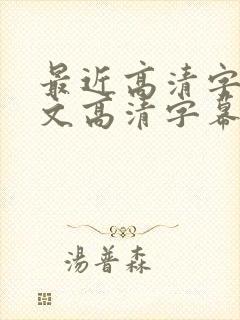 最近高清字
文高清字幕
湯普森